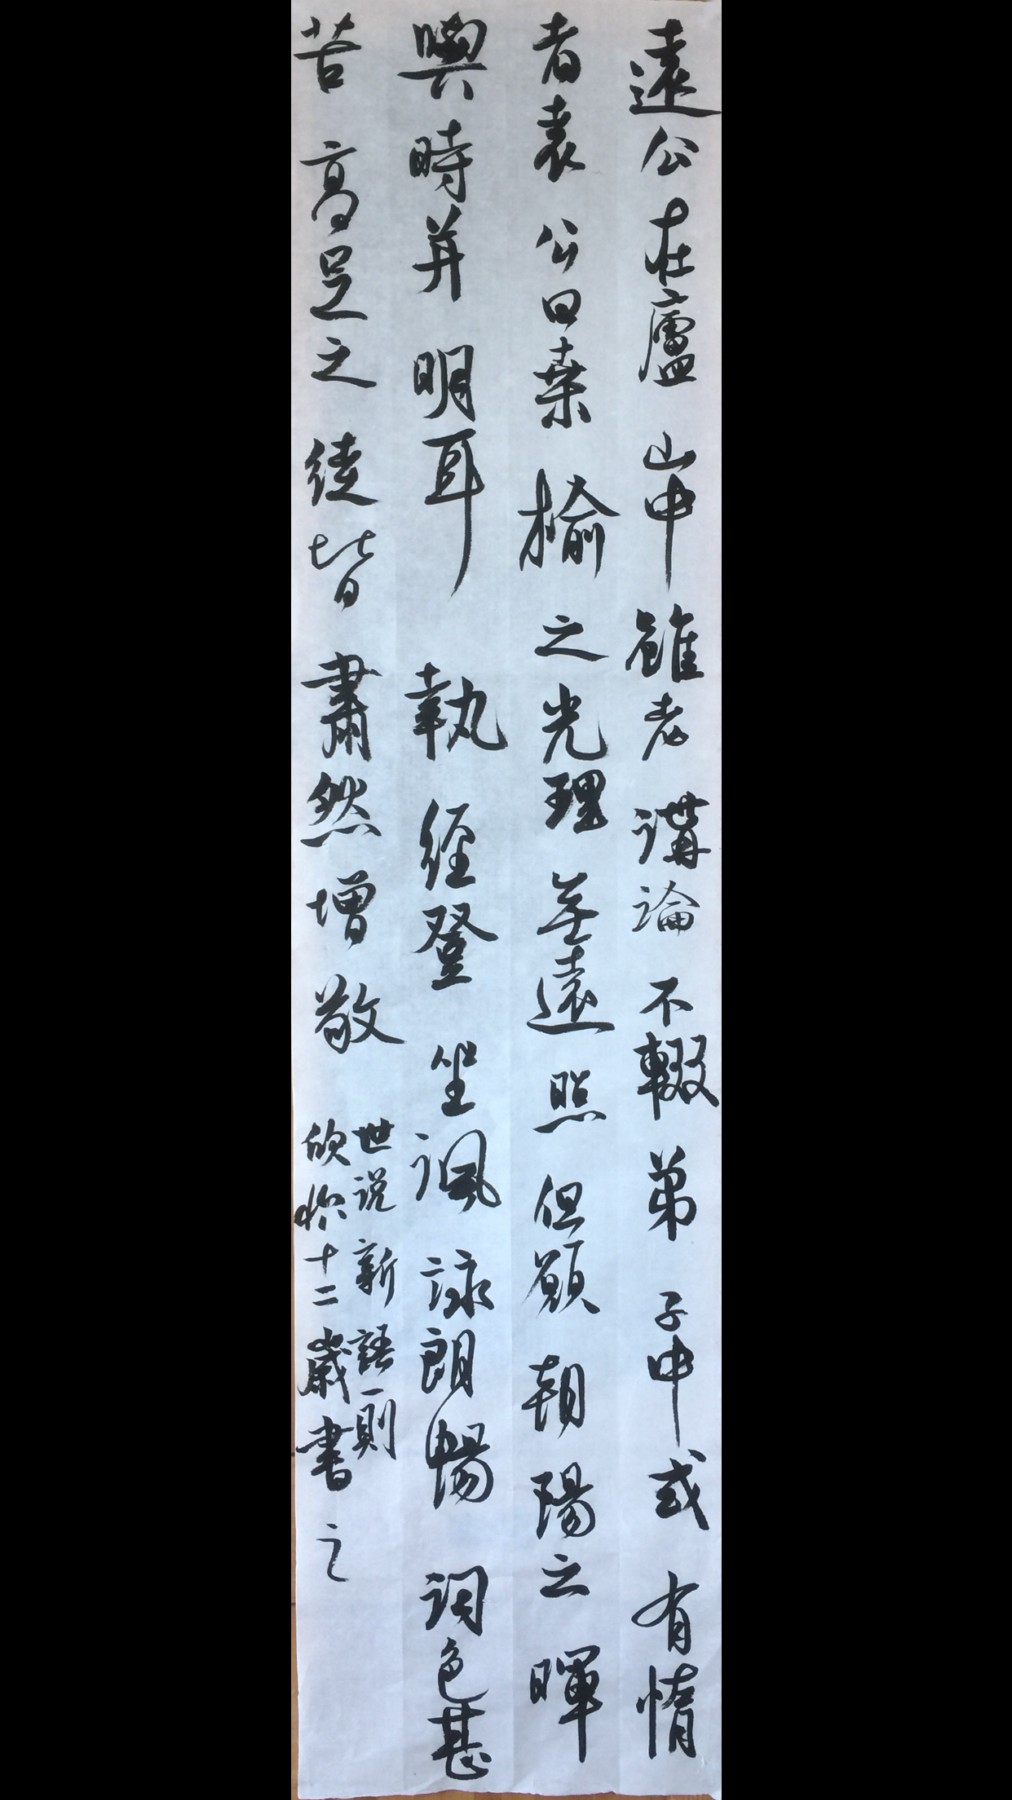 遠公在廬山中雖老講論不輟弟子中或有惰
者遠公曰桑榆之光理無遠照但願朝陽之暉
與時并明耳執經登坐諷詠朗暢詞色甚
苦高足之徒皆肅然增敬
世说新語一則
欣怡十二歲書之